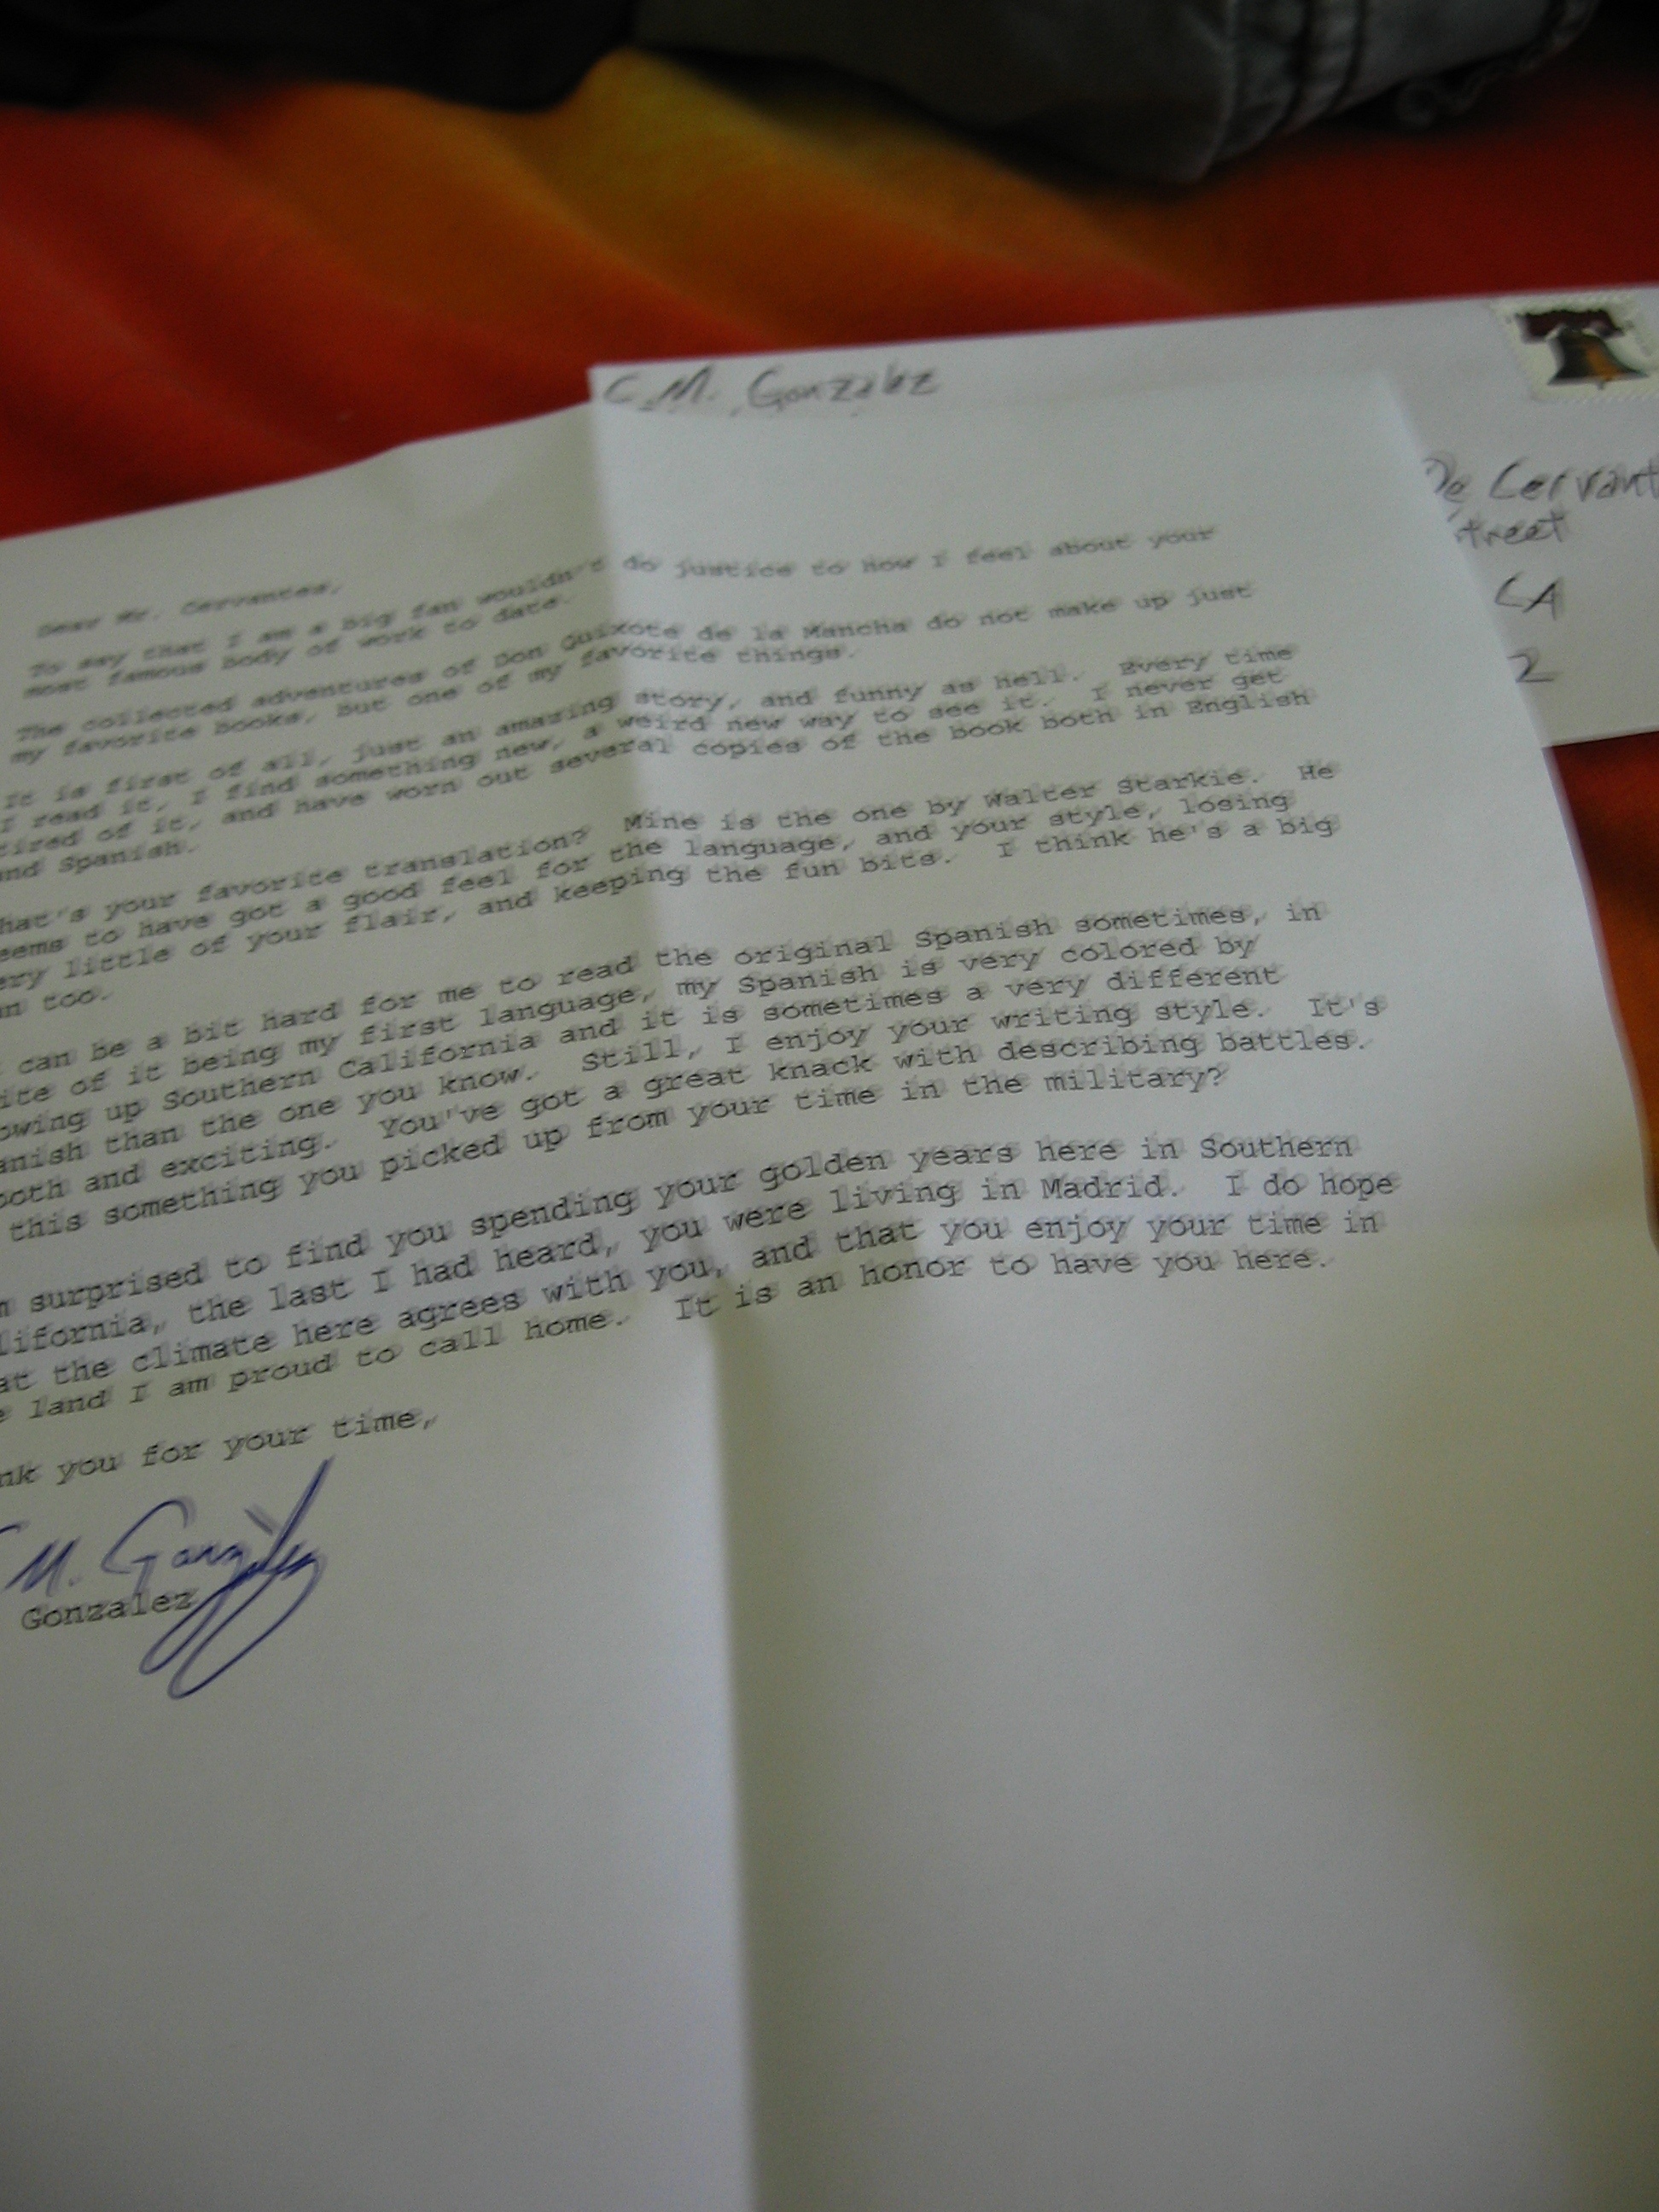 C.M. Gonzalez
De Cervant
treet
CA
2
Dear Mr. Cervantes,
To say that I am a big fan wouldn't do justice to how I feel about your
most famous body of work to date.
The collected adventures of Don Quixote de la Mancha do not make up just
my favorite books, but one of my favorite things.
It is first of all, just an amazing story, and funny as hell. Every time
I read it, I find something new, a weird new way to see it. I never get
tired of it, and have worn out several copies of the book both in English
and Spanish.
hat's your favorite translation? Mine is the one by Walter Starkie. He
eems to have got a good feel for the language, and your style, losing
ery little of your flair, and keeping the fun bits. I think he's a big
an too.
can be a bit hard for me to read the original Spanish sometimes, in
ite of it being my first language, my Spanish is very colored by
owing up Southern California and it is sometimes a very different
anish than the one you know. Still, I enjoy your writing style. It's
ooth and exciting. You've got a great knack with describing battles.
this something you picked up from your time in the military?
m surprised to find you spending your golden years here in Southern
lifornia, the last I had heard, you were living in Madrid. I do hope
at the climate here agrees with you, and that you enjoy your time in
e land I am proud to call home. It is an honor to have you here.
nk you for your time,
M. Gonzalez
Gonzalez